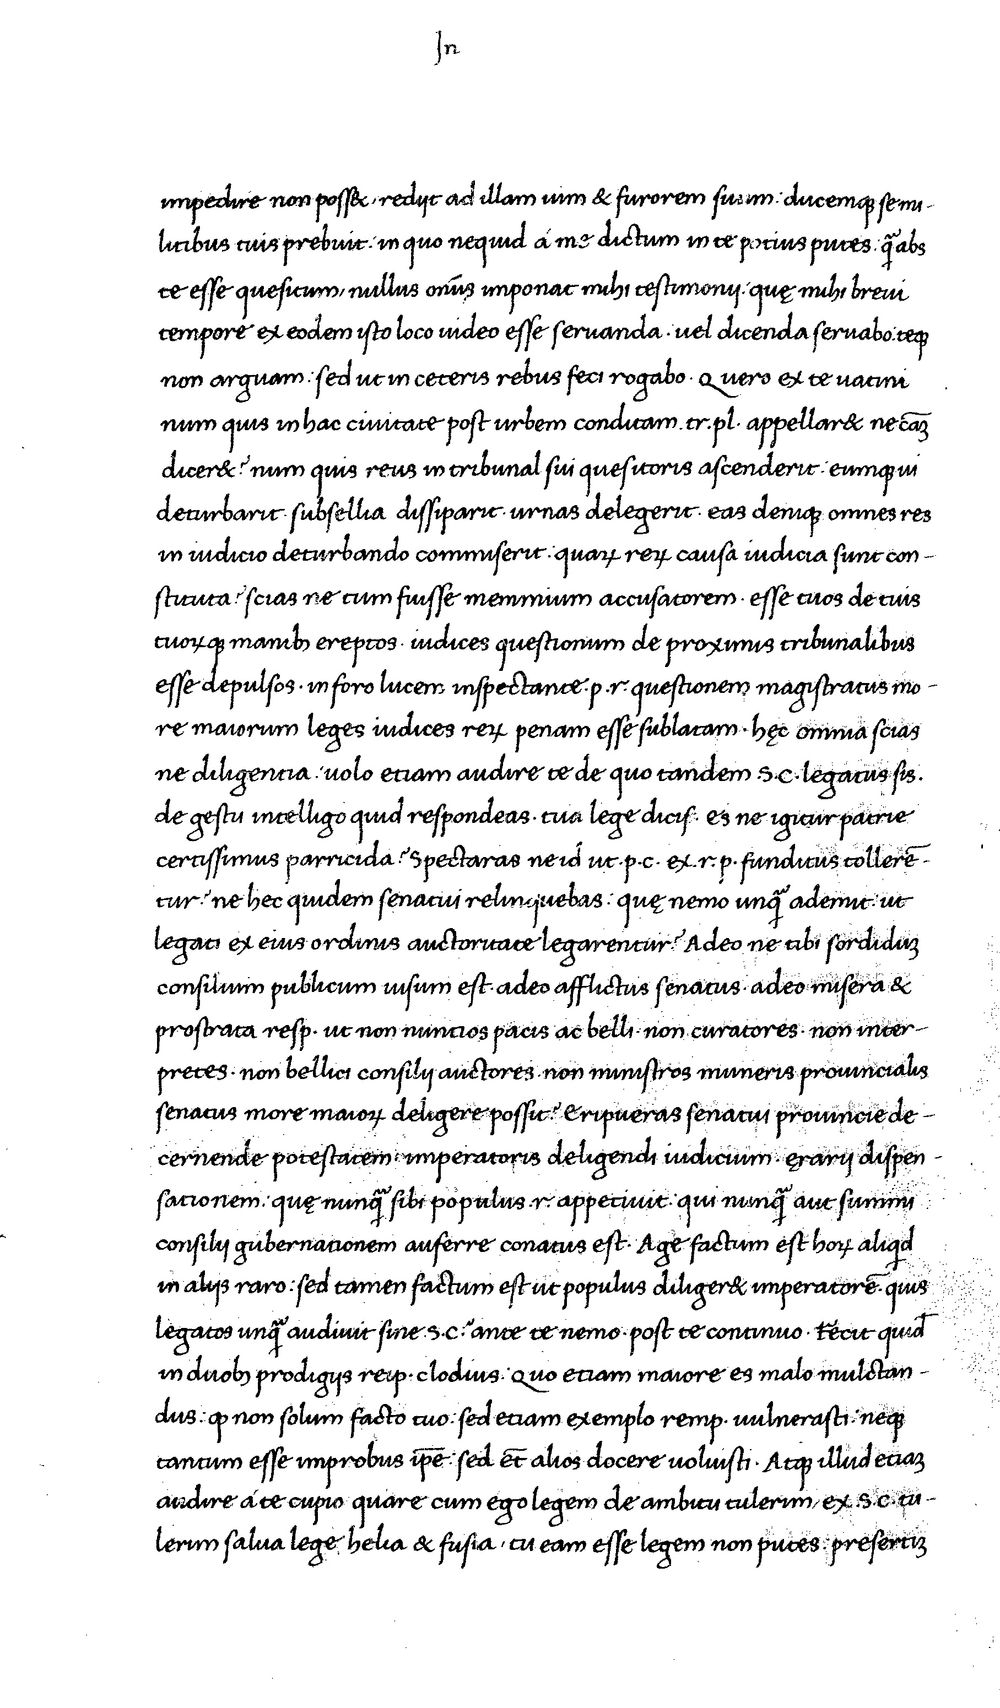 Jn
impedire non poss&, redijt ad illam uim & furorem suum: ducemq se mi-
litibus tuis prebuit: in quo nequid á me dictum in te potius putes. q̃ abs
te esse quesitum, nullus om̃s imponat mihi testimonij: quę mihi breui
tempore ex eodem isto loco uideo esse seruanda. uel dicenda seruabo: teq
non arguam: sed ut in ceteris rebus feci rogabo. Quero ex te uatini
num quis in hac ciuitate post urbem conditam. tr. pl. appellar& ne cãʒ
dicer&? num quis reus in tribunal sui quesitoris ascenderit: eumq ui
deturbarit. subsellia dissiparit. urnas delegerit. eas deniq omnes res
in iudicio deturbando commiserit: quaꝝ reꝝ causa iudicia sunt con-
stituta? scias ne tum fuisse memmium accusatorem. esse tuos de tuis
tuoꝝq manibꝫ ereptos. iudices questionum de proximis tribunalibus
esse depulsos. in foro lucem inspectante. p. r. questionem magistratus mo-
re maiorum leges iudices reꝝ penam esse sublatam. hęc omnia scias
ne diligentia: uolo etiam audire te de quo tandem .S.C. legatus sis.
de gestu intelligo quid respondeas. tua lege dicis. es ne igitur patrie
certissimus parricida? Spectaras ne id ut .p.c. ex .r.p. funditus tollerē-
tur? ne hec quidem senatui relinquebas: quę nemo unq̃ ademit: ut
legati ex eius ordinis auctoritate legarentur? Adeo ne tibi sordiduʒ
consilium publicum uisum est. adeo afflictus senatus. adeo misera &
prostrata resp. ut non nuntios pacis ac belli. non curatores. non inter-
pretes. non bellici consilij auctores. non ministros muneris prouincialis
senatus more maioꝝ deligere possit? Eripueras senatui prouincie de-
cernende potestatem. imperatoris deligendi iudicium. ęrarij dispen-
sationem: quę nunq̃ sibi populus .r. appetiuit. qui nunq̃ aut summi
consilij gubernationem auferre conatus est. Age factum est hoꝝ aliqd
in alijs raro: sed tamen factum est ut populus diliger& imperatorē. quis
legatos unq̃ audiuit sine .s.c.? ante te nemo. post te continuo. Fecit quid
in duobꝫ prodigijs reip. clodius. Quo etiam maiore es malo mulctan-
dus: ꝙ non solum facto tuo: sed etiam exemplo remp. uulnerasti: neq
tantum esse improbus ip̄e: sed et̄ alios docere uoluisti. Atq illud etiaʒ
audire á te cupio quare cum ego legem de ambitu tulerim, ex .S.C. tu-
lerim salua lege helia & fusia, tu eam esse legem non putes: presertiʒ